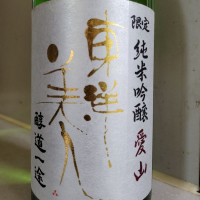 限定
純米吟醸 愛山
東洋美人
醇道一途